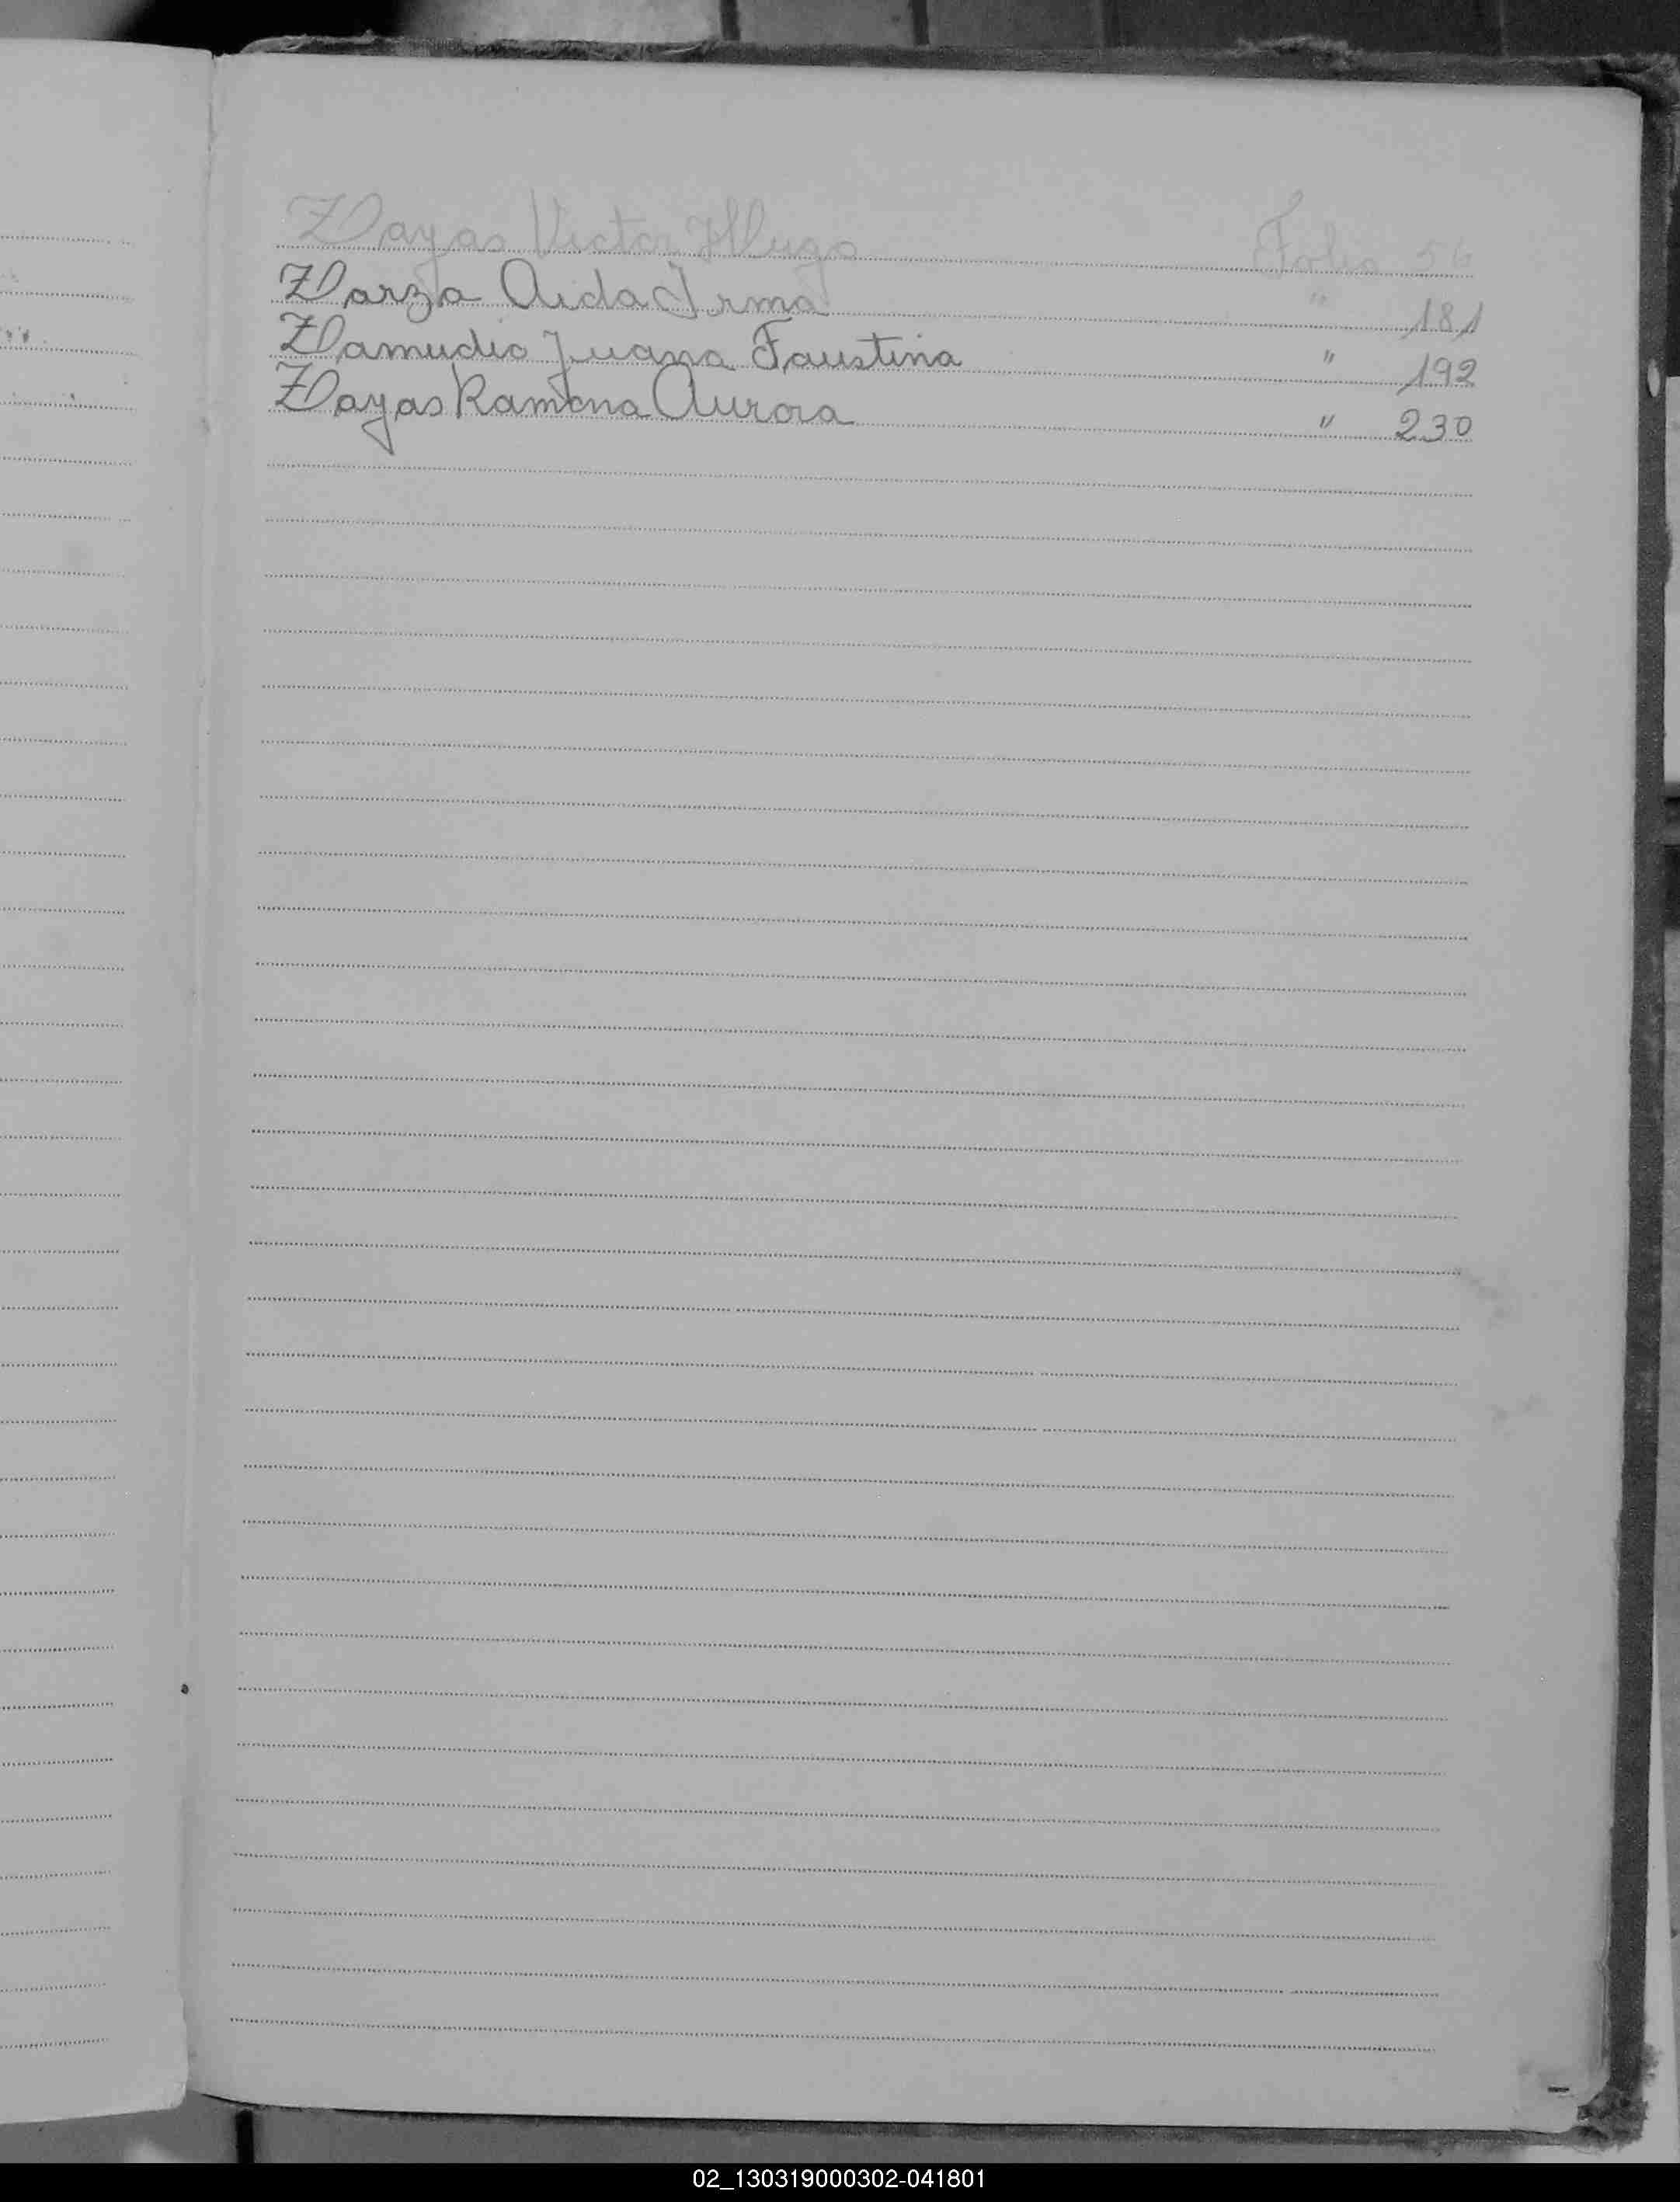 Zayas Victor Hugo Folio 56
Zarza Aida Irma " 181
Zamudio Juana Faustina " 192
Zayas Ramona Aurora " 230
02_130319000302-041801